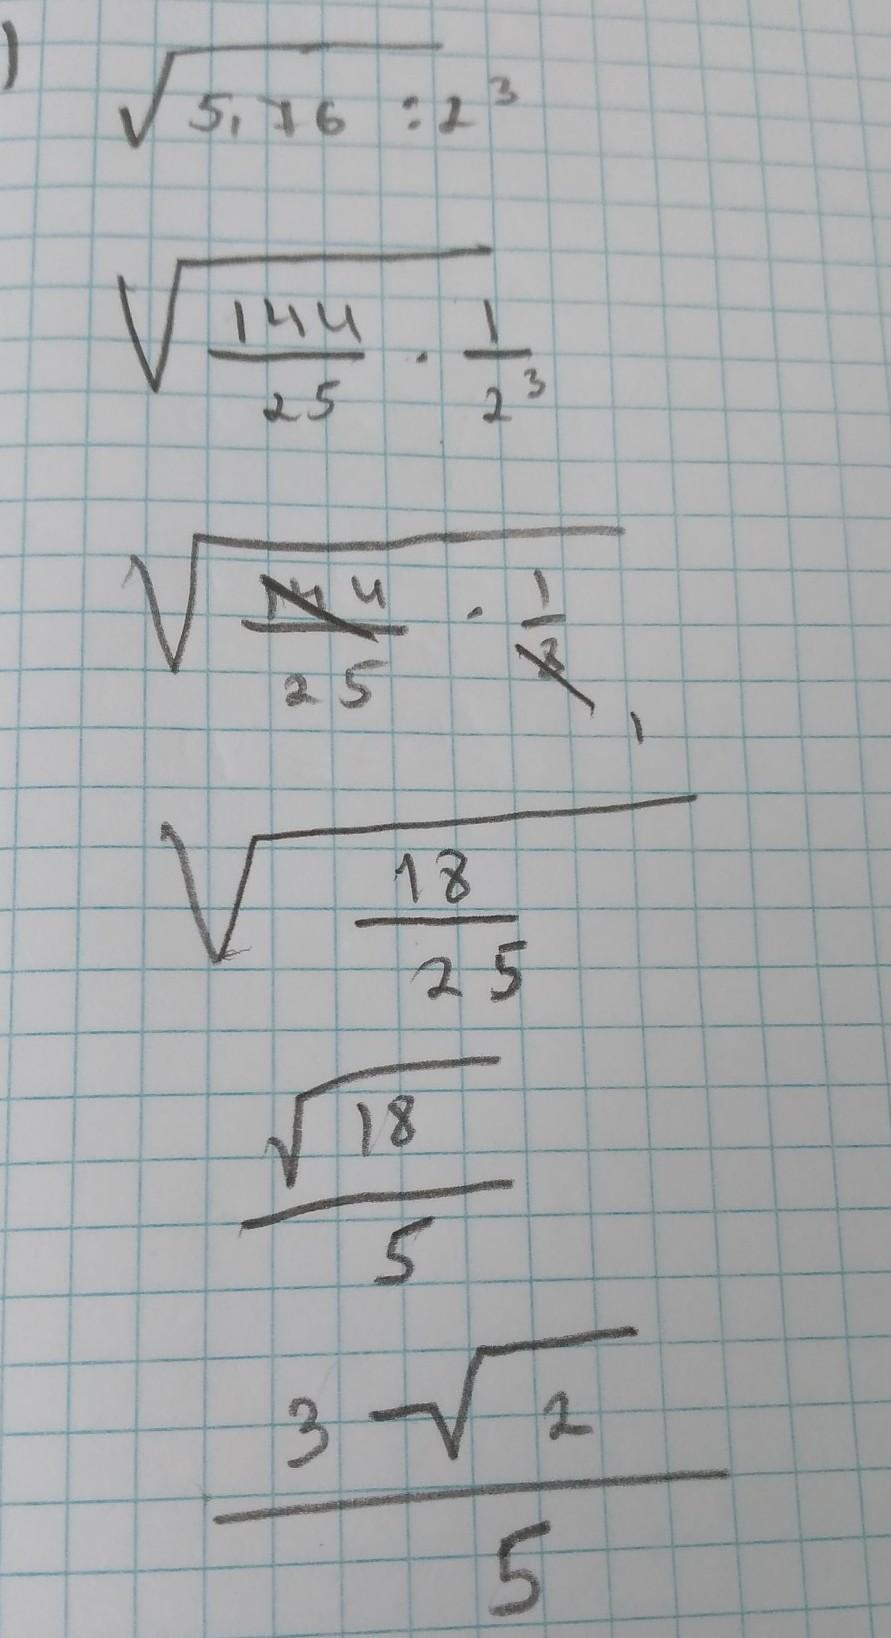 )
√5,76 : 2³
√144/25 · 1/2³
√144/25 · 1/8 1
√18/25
√18/5
3√2/5